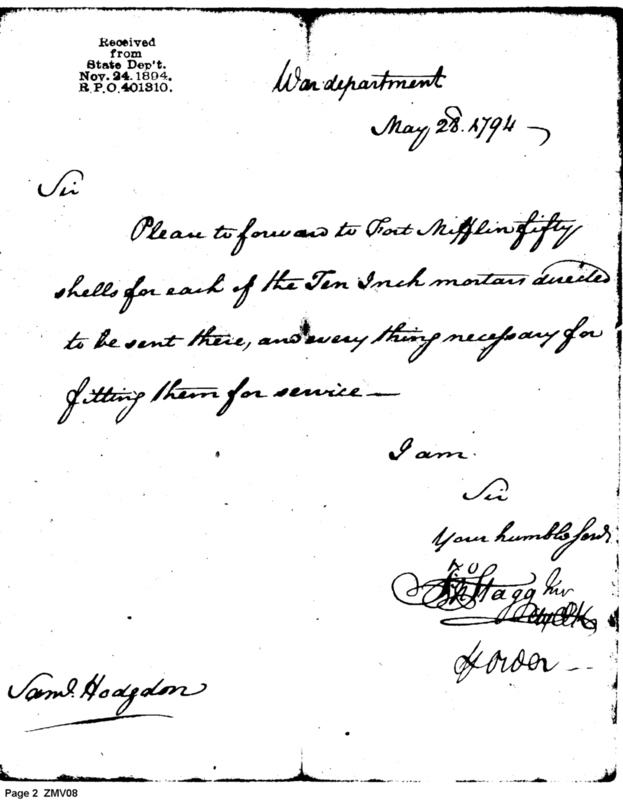 Received
from
State Dep't.
Nov. 24. 1894.
R.P.O. 401310.
War department
May 28. 1794
Sir
Please to forward to Fort Mifflin fifty
shells for each of the Ten Inch mortars directed
to be sent there, and every thing necessary for
fitting them for service —
I am
Sir
Your humble Servt
Jno Stagg Junr
Sam.l Hodgdon
Page 2 ZMV08